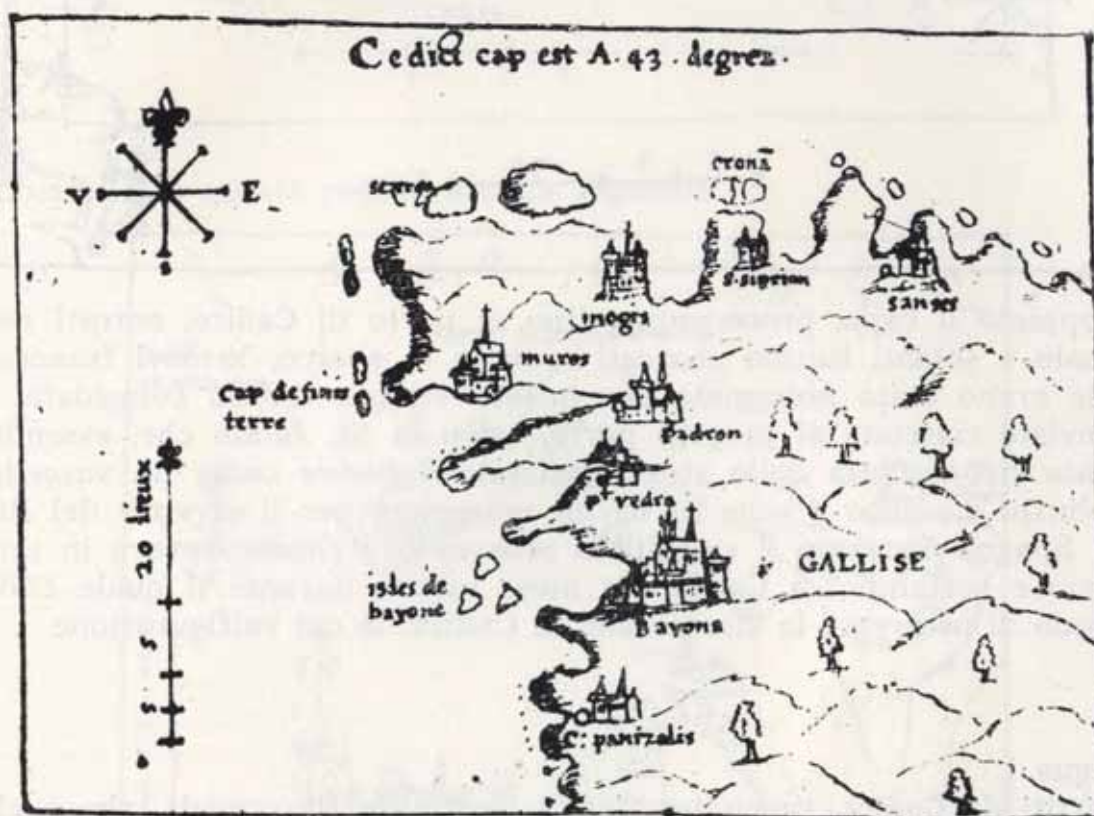 Cedict cap est A. 43. degrez.
V E
S
cronā
mogrs
S. siprion
sanses
muros
Cap de finis
terre
padron
pt vedra
GALLISE
isles de
bayone
Bayona
C: panizalis
5 5 20 lieux